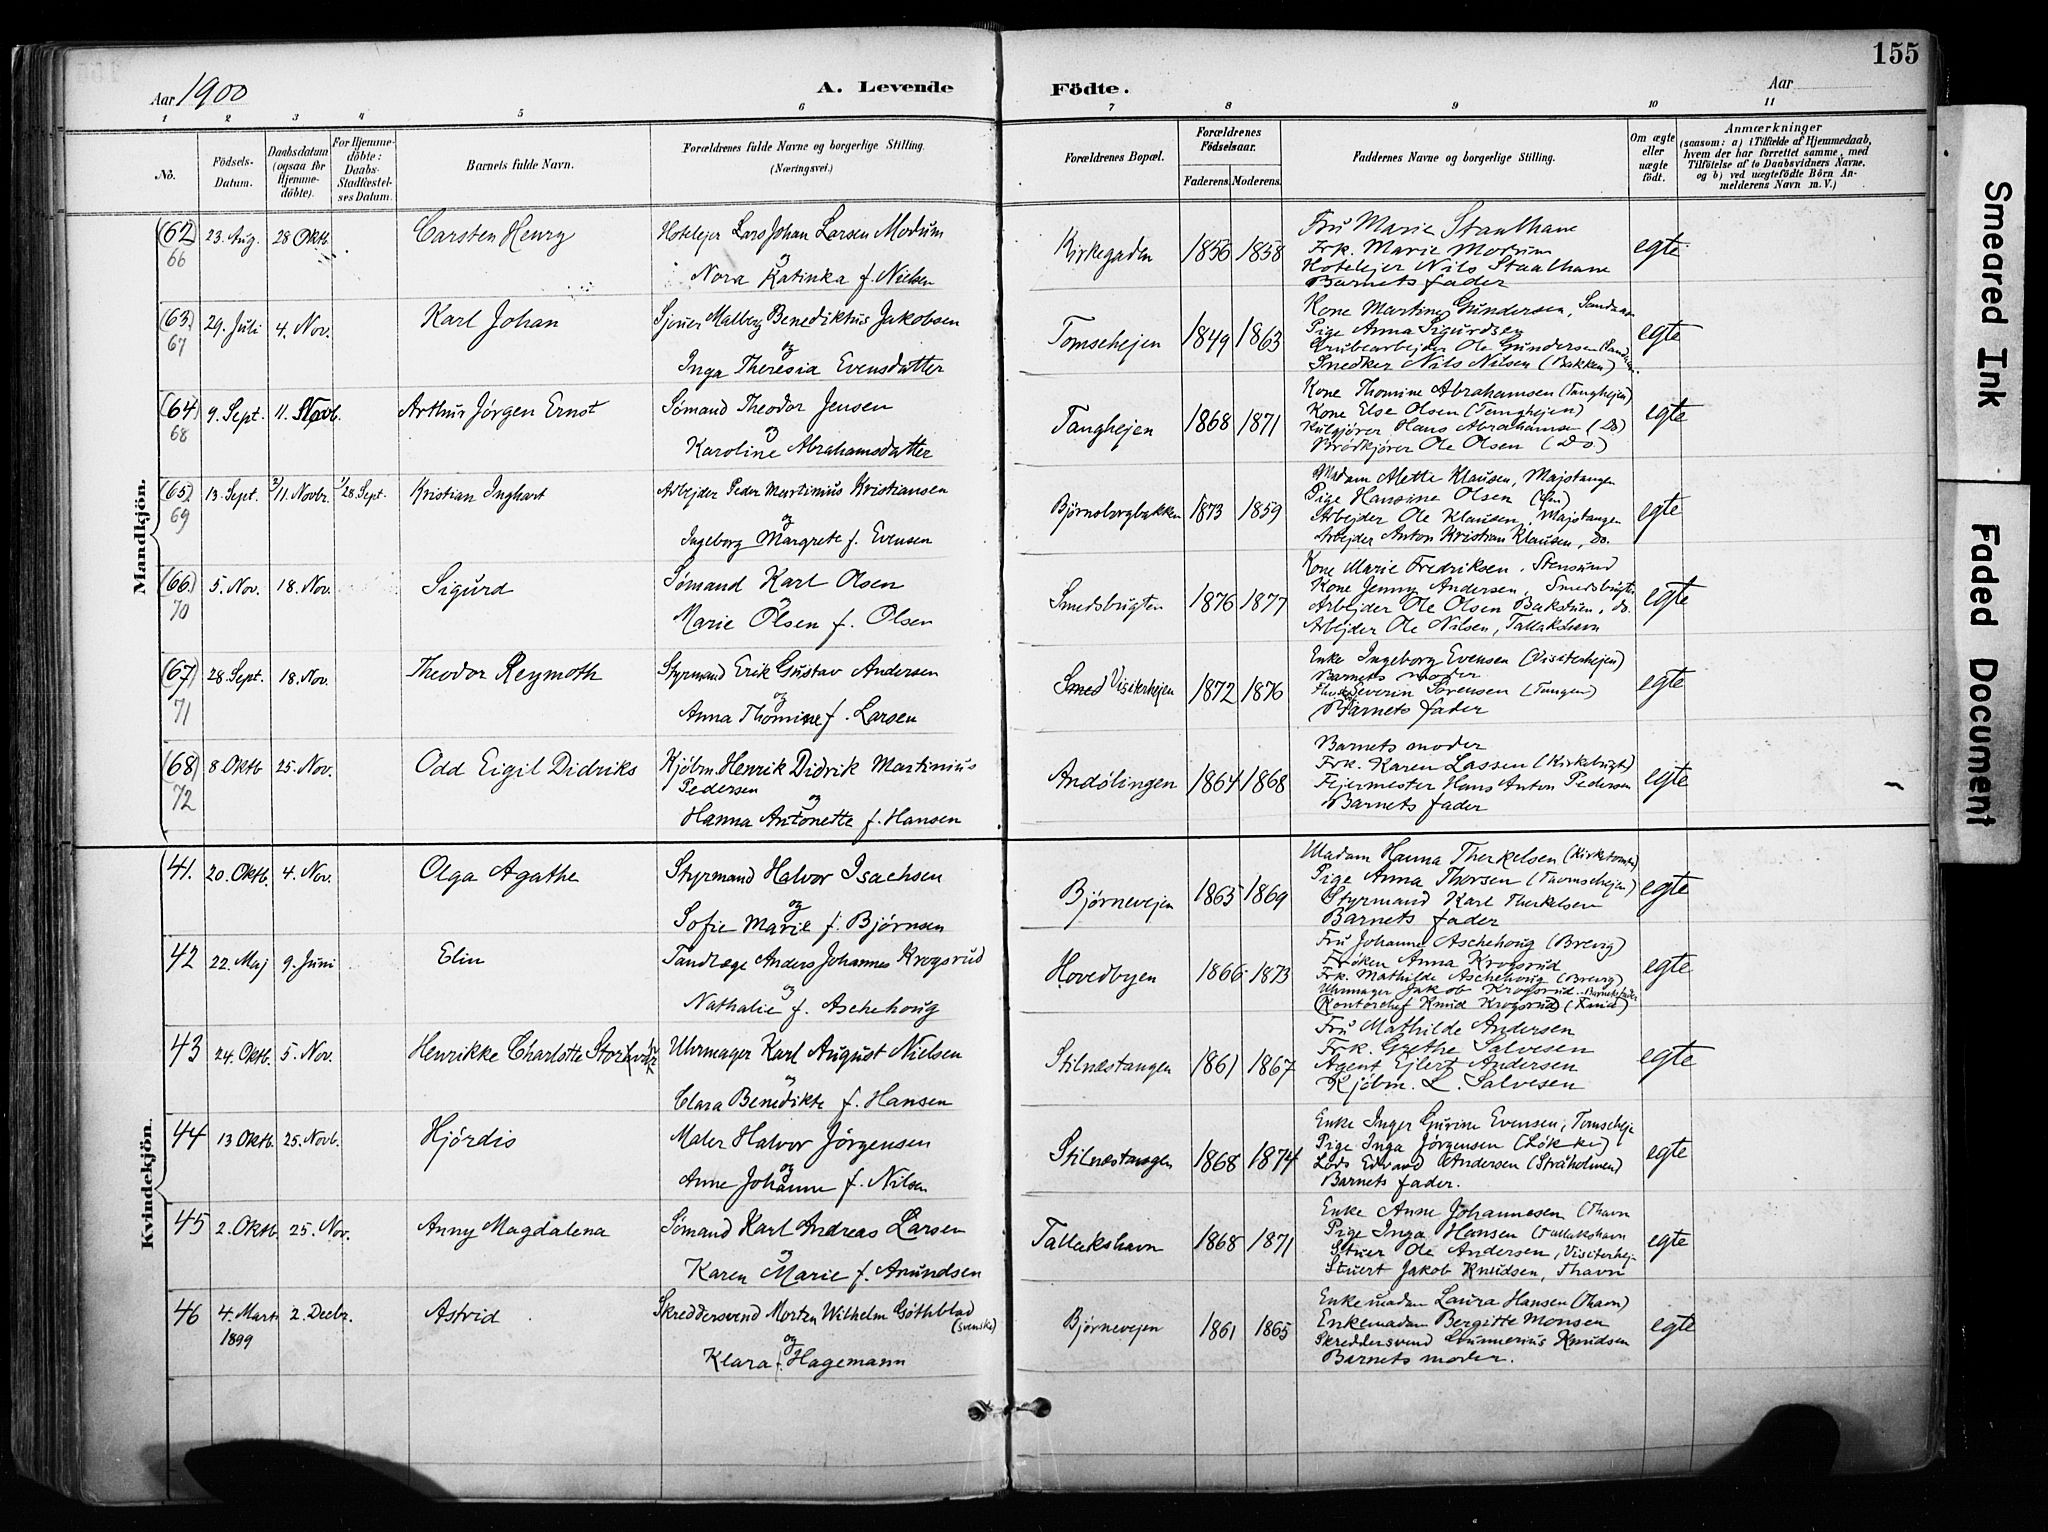 155
Aar 1900
A. Levende Födte.
Aar
1 2 3 4 5 6 7 8 9 10 11
No.
Födsels-Datum.
Daabsdatum (ogsaa för Hjemmedöbte).
For Hjemmedöbte: Daabs-Stadfæstelses Datum.
Barnets fulde Navn.
Forældrenes fulde Navne og borgerlige Stilling. (Næringsvei.)
Forældrenes Bopæl.
Forældrenes Födselsaar.
Faderens. Moderens.
Faddernes Navne og borgerlige Stilling.
Om ægte eller uægte födt.
Anmærkninger
(saasom: a) i Tilfælde af Hjemmedaab, hvem der har forrettet samme, med Tilföielse af to Daabsvidners Navne, og b) ved uægtefödte Börn Anmelderens Navn m. V.)
Mandkjön.
(62) 66 23 Aug. 28 Oktb. Carsten Henry
Hotelejer Lars Johan Larsen Modum
og
Nora Katinka f. Nielsen
Kirkegaden 1856 1858
Fru Marie Staalhane
Frk. Marie Modum
Hotelejer Nils Staalhane
Barnets fader
egte
(63) 67 29. Juli 4. Nov. Karl Johan
Sjouer Malberg Benedikhus Jakobsen
og
Inga Theresia Evensdatter
Tomsehejen 1849 1863
Kone Martine Gundersen,
Pige Anna Sigurdsen
Grubearbejder Ole Gundersen
Snedker Nils Nilsen (Bakken)
egte
(64) 68 9. Sept. 11. Novb. Arthur Jörgen Ernst
Sömand Theodor Jensen
og
Karoline Abrahamsdatter
Tanghejen 1868 1871
Kone Thomine Abrahamsen (Tanghejen)
Kone Else Olsen (Tanghejen)
Hans Abrahamsen (Do)
Brödkjörer Ole Olsen (Do)
egte
(65) 69 13. Sept. 2/11. Novbr. 1/28. Sept. Kristian Inghart
Arbejder Peder Martinius Kristiansen
og
Ingeborg Margrete f. Evensen
Björnsbergbakken 1873 1859
Madam Alette Klausen, Majstangen
Pige Hansine Olsen
Arbejder Ole Klausen, Majstangen
Arbejder Anton Kristian Klausen, do.
egte
(66) 70 5. Nov. 18. Nov. Sigurd
Sömand Karl Olsen
og
Marie Olsen f. Olsen
Smedsbugten 1876 1877
Kone Marie Fredriksen, Stensund
Kone Jenny Andersen, Smedsbugten
Arbejder Ole Olsen Bakstuen, do.
Arbejder Ole Nilsen, Tallakshavn
egte
(67) 71 28 Sept. 18. Nov. Theodor Reymoth
Styrmand Erik Gustav Andersen
og
Anna Thomine f. Larsen
Visiterhejen 1872 1876
Enke Ingeborg Evensen (Visiterhejen)
Barnets moder
Severin Sörensen (Tangen)
Barnets fader
egte
(68) 72 8 Oktb 25. Nov. Odd Eigil Didriks
Kjöbm. Henrik Didrik Martinius
Pedersen
og
Hanna Antonette f. Hansen
Andölingen 1864 1868
Barnets moder
Frk. Karen Lassen (Kirkebugt)
Fejermester Hans Anton Pedersen
Barnets fader
egte
Kvindekjön.
41. 20. Oktb. 4. Nov. Olga Agathe
Styrmand Halvor Isachsen
og
Sofie Marie f. Björnsen
Björnevejen 1865 1869
Madam Hanna Therkelsen (Kirketomten)
Pige Anna Thorsen (Tomsehejen)
Styrmand Karl Therkelsen
Barnets fader
egte
42 22. Maj 9. Juni Elin
Tandlæge Anders Johannes Krogsrud
og
Nathalie f. Aschehoug
Hovedbyen 1866 1873
Fru Johanne Aschehoug (Brevig)
Fröken Anna Krogsrud
Frk. Mathilde Aschehoug (Brevig)
Uhrmager Jakob Krogsrud. Barnets fader
Kontorchef Knud Krogsrud
egte
43 24. Oktb. 5. Nov. Henrikke Charlotte
Uhrmager Karl August Nielsen
og
Clara Benedikte f. Hansen
Stilnæstangen 1861 1867
Fru Mathilde Andersen
Frk. Grethe Salvesen
Agent Ejlert Andersen
Kjöbm. L. Salvesen
egte
44 13 Oktb. 25. Novb. Hjördis
Maler Halvor Jörgensen
og
Anne Johanne f. Nilsen
Stilnæstangen 1868 1874
Enke Inger Gurine Evensen, Tomseheje
Pige Inga Jörgensen (Lökke)
Lods Edvard Andersen (Stråholmen)
Barnets fader.
egte
45 2. Oktb. 25. Nov. Anny Magdalena
Sömand Karl Andreas Larsen
og
Karen Marie f. Amundsen
Tallakshavn 1868 1871
Enke Anne Johannesen (Thavn
Pige Inga Hansen (Tallakshavn
Stuer Ole Andersen, Visiterhej
Stuert Jakob Knudsen, Thavn
egte
46 4. Marts 1899 2. Decbr. Astrid
Skreddersvend Morten Wilhelm Göthblad
(svenske)
og
Klara f. Hagemann
Björnevejen 1861 1865
Enkemadam Laura Hansen (Thavn)
Enkemadam Bergitte Monsen
Skreddersvend Gunnerius Knudsen
Barnets moder.
egte
Smeared Ink
Faded Document